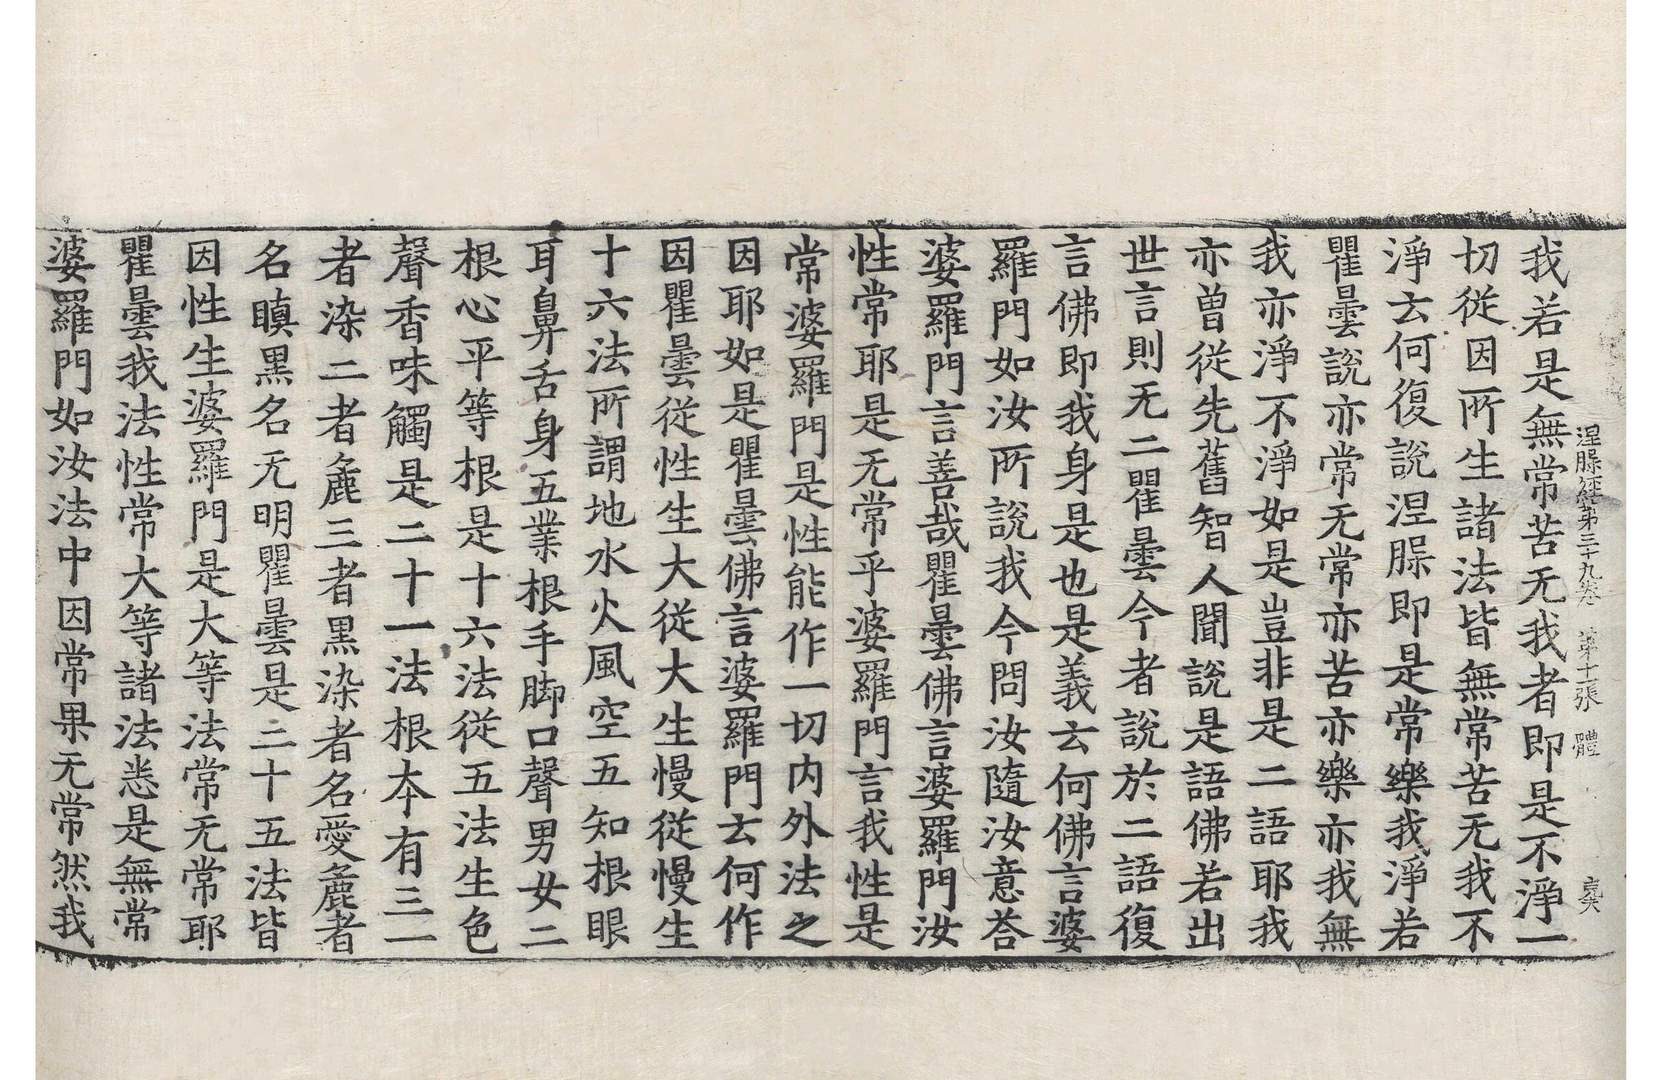 涅槃經第三十九卷 第十張 體
我若是無常苦无我者即是不淨一
切從因所生諸法皆無常苦无我不
淨云何復說涅槃即是常樂我淨若
瞿曇說亦常无常亦苦亦樂亦我無
我亦淨不淨如是豈非是二語耶我
亦曾從先舊智人聞說是語佛若出
世言則无二瞿曇今者說於二語復
言佛即我身是也是義云何佛言婆
羅門如汝所說我今問汝隨汝意荅
婆羅門言善哉瞿曇佛言婆羅門汝
性常耶是无常乎婆羅門言我性是
常婆羅門是性能作一切内外法之
因耶如是瞿曇佛言婆羅門云何作
因瞿曇從性生大從大生慢從慢生
十六法所謂地水火風空五知根眼
耳鼻舌身五業根手脚口聲男女二
根心平等根是十六法從五法生色
聲香味觸是二十一法根本有三一
者染二者麁三者黑染者名愛麁者
名瞋黑名无明瞿曇是二十五法皆
因性生婆羅門是大等法常无常耶
瞿曇我法性常大等諸法悉是無常
婆羅門如汝法中因常果无常然我